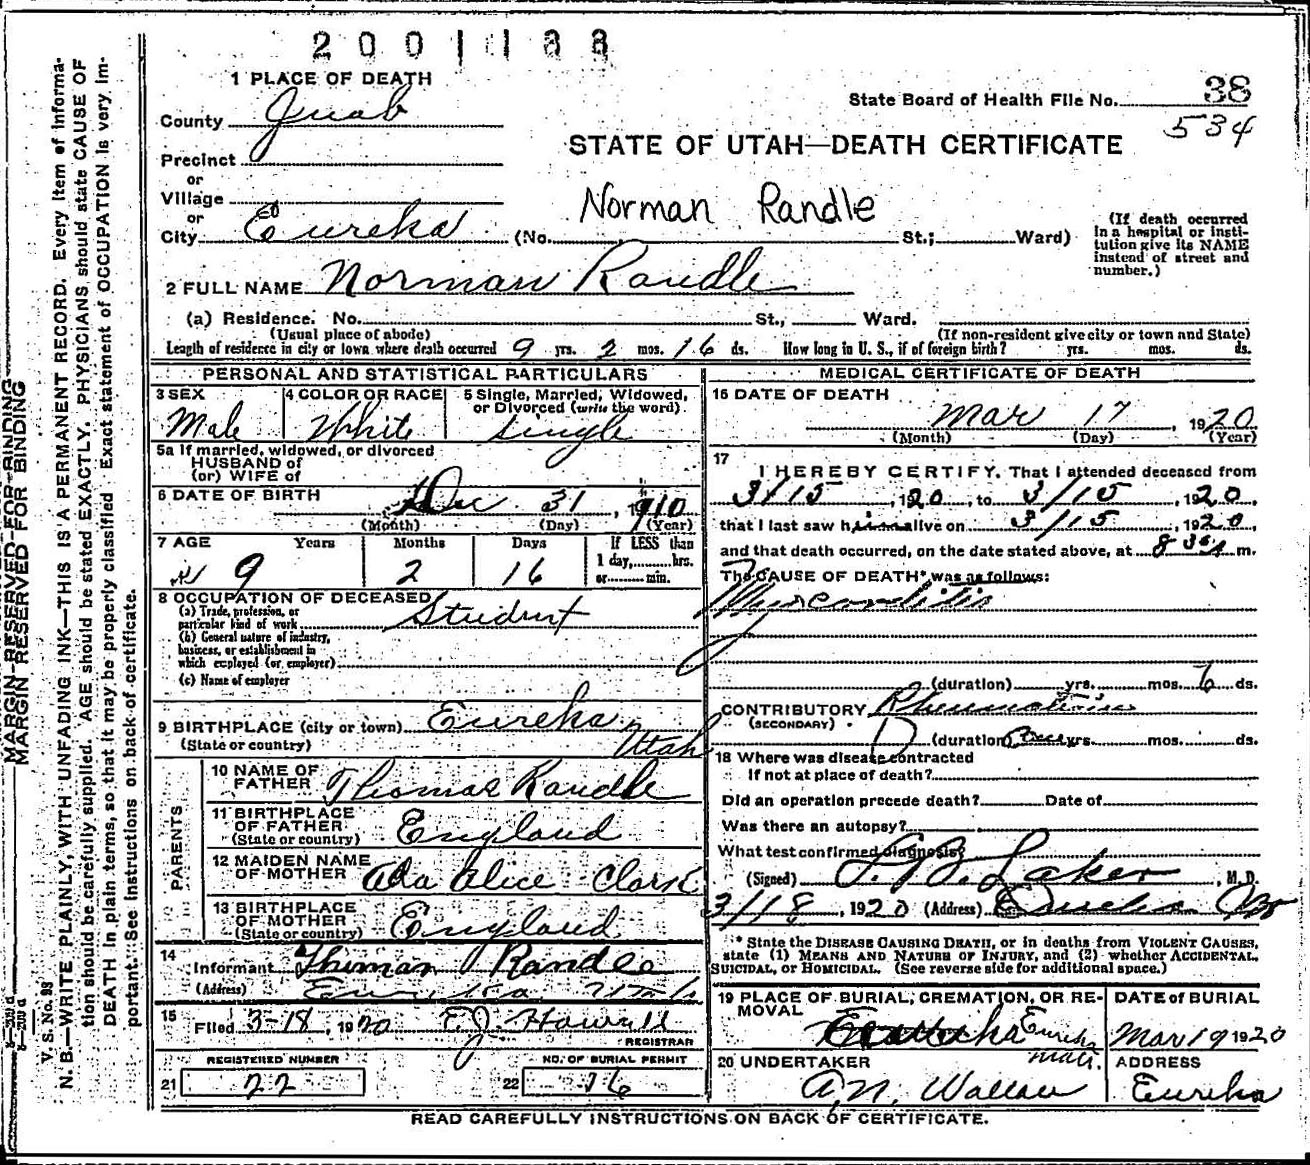 2001188
1 PLACE OF DEATH
State Board of Health File No. 38
County Juab
534
STATE OF UTAH—DEATH CERTIFICATE
Precinct
or
Village
Norman Randle
or
City Eureka (No. St.; Ward)
(If death occurred in a hospital or institution give its NAME instead of street and number.)
2 FULL NAME Norman Randle
(a) Residence. No. St., Ward.
(Usual place of abode) (If non-resident give city or town and State)
Length of residence in city or town where death occurred 9 yrs. 2 mos. 16 ds. How long in U. S., if of foreign birth? yrs. mos. ds.
PERSONAL AND STATISTICAL PARTICULARS
3 SEX 4 COLOR OR RACE 5 Single, Married, Widowed, or Divorced (write the word)
Male White Single
5a If married, widowed, or divorced
HUSBAND of
(or) WIFE of
6 DATE OF BIRTH Dec 31, 1910
(Month) (Day) (Year)
7 AGE Years Months Days If LESS than
1 day, hrs.
or min.
9 2 16
8 OCCUPATION OF DECEASED
(a) Trade, profession, or particular kind of work Student
(b) General nature of industry, business, or establishment in which employed (or employer)
(c) Name of employer
9 BIRTHPLACE (city or town) Eureka
(State or country) Utah
PARENTS
10 NAME OF FATHER Thomas Randle
11 BIRTHPLACE OF FATHER (State or country) England
12 MAIDEN NAME OF MOTHER Ada Alice Clark
13 BIRTHPLACE OF MOTHER (State or country) England
14 Informant Thomas Randle
(Address) Eureka Utah
15 Filed 3-18, 1920 E.J. Howell
REGISTRAR
REGISTERED NUMBER NO. OF BURIAL PERMIT
21 22 22 16
MEDICAL CERTIFICATE OF DEATH
16 DATE OF DEATH
Mar 17, 1920
(Month) (Day) (Year)
17 I HEREBY CERTIFY, That I attended deceased from
3/15, 1920, to 3/15, 1920,
that I last saw him alive on 3/15, 1920,
and that death occurred, on the date stated above, at 8 30 A m.
The CAUSE OF DEATH* was as follows:
Myocarditis
(duration) yrs. mos. 6 ds.
CONTRIBUTORY Rheumatism
(SECONDARY)
(duration) yrs. mos. ds.
18 Where was disease contracted
If not at place of death?
Did an operation precede death? Date of
Was there an autopsy?
What test confirmed diagnosis?
(Signed) Laker, M. D.
3/18, 1920 (Address) Eureka
* State the DISEASE CAUSING DEATH, or in deaths from VIOLENT CAUSES,
state (1) MEANS AND NATURE OF INJURY, and (2) whether ACCIDENTAL,
SUICIDAL, or HOMICIDAL. (See reverse side for additional space.)
19 PLACE OF BURIAL, CREMATION, OR REMOVAL DATE of BURIAL
Eureka Mar 19 1920
20 UNDERTAKER ADDRESS
A.N. Wallace Eureka
READ CAREFULLY INSTRUCTIONS ON BACK OF CERTIFICATE.
MARGIN RESERVED FOR BINDING
MARGIN RESERVED FOR BINDING
V. S. No. 98
N. B.—WRITE PLAINLY, WITH UNFADING INK—THIS IS A PERMANENT RECORD. Every item of information
should be carefully supplied. AGE should be stated EXACTLY. PHYSICIANS should state CAUSE OF
DEATH in plain terms, so that it may be properly classified. Exact statement of OCCUPATION is very important.
See instructions on back of certificate.